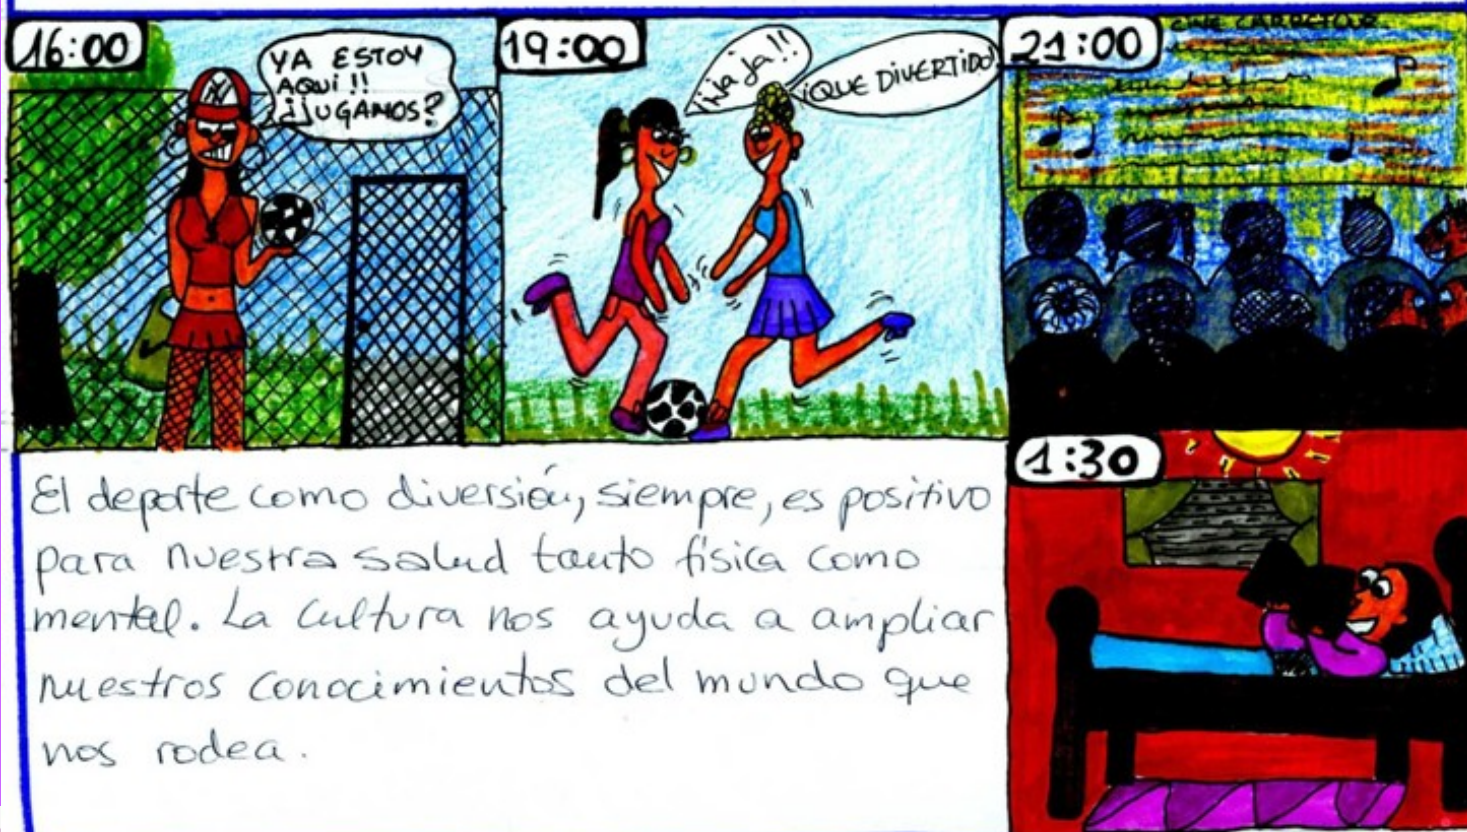 16:00
YA ESTOY
AQUÍ!!
¡¡JUGAMOS?
19:00
¡¡Ja ja!!
¡QUE DIVERTIDO!
21:00
CINE
1:30
El deporte como diversión, siempre, es positivo
para nuestra salud tanto física como
mental. La cultura nos ayuda a ampliar
nuestros conocimientos del mundo que
nos rodea.